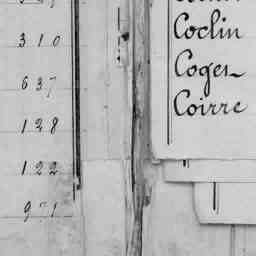 310
637
128
122
Coclin
Coges
Coirre